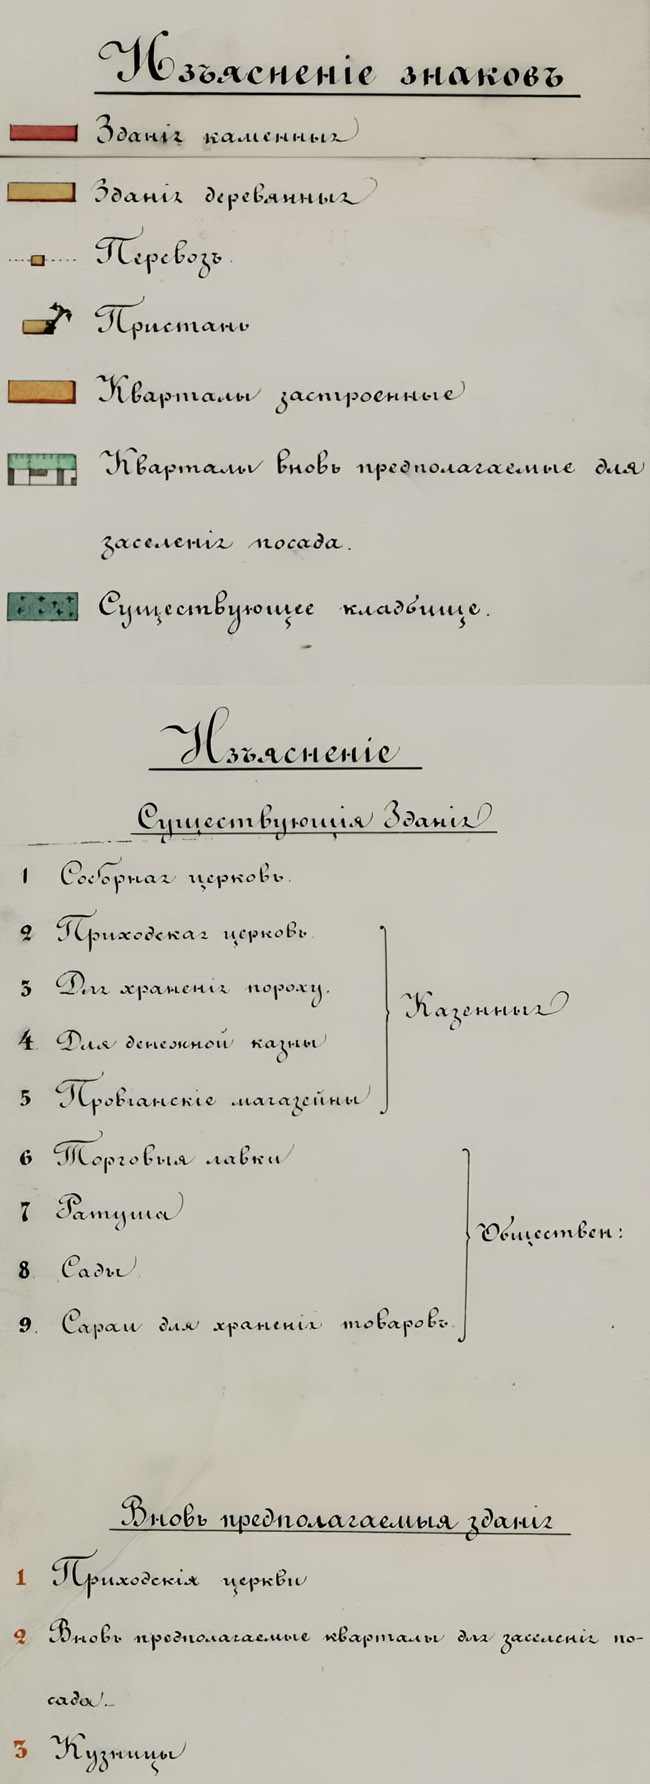 Изъясненіе знаковъ
Зданія каменныя
Зданія деревянныя
Перевозъ.
Пристань
Кварталы застроенные
Кварталы вновь предполагаемые для
заселенія посада.
Существующее кладбище.
Изъясненіе
Существующія Зданія
1 Соборная церковь.
2 Приходская церковь.
3 Для храненія пороху.
4 Для денежной казны
5 Провіанскіе магазейны
Казенныя
6 Торговыя лавки
7 Ратуша
8 Сады
9. Сараи для храненія товаровъ.
Обществен:
Вновь предполагаемыя зданія
1 Приходскія церкви
2 Вновь предполагаемые кварталы для заселенія по-
сада.
3 Кузницы